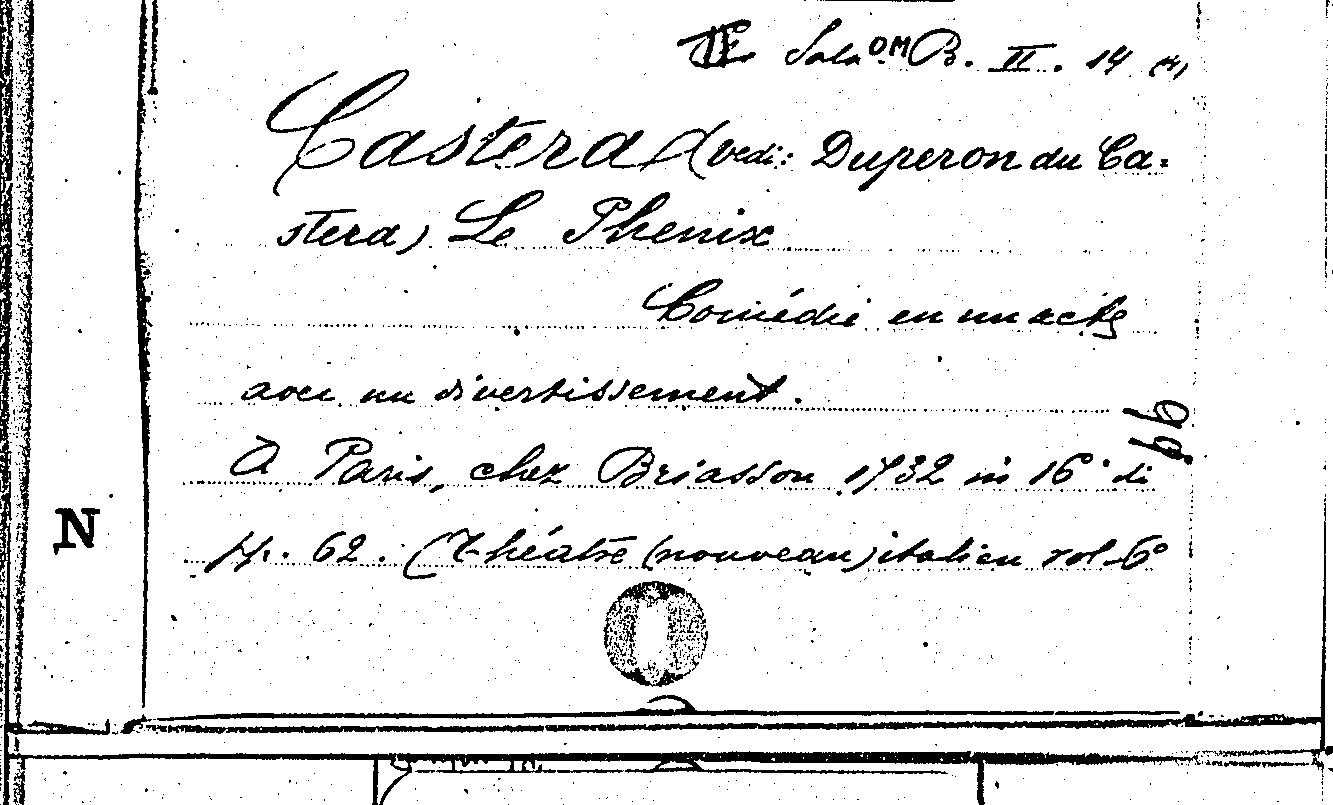 Sala OM B. II. 14 (4)
Castera (vedi: Duperon du Ca-
stera) Le Phenix
Comédie en un acte
avec un divertissement.
A Paris, chez Briasson 1732 in 16° di
pp. 62. (Théatre (nouveau) italien vol. 6°
bb
N